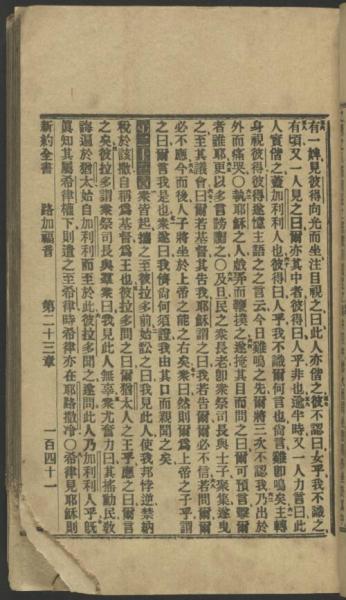 有一婢見彼得向光而坐注目視之曰此人亦偕之彼不認曰女乎我不識之
有頃又一人見之曰爾亦其中者彼得曰人乎非也逾半時又一人力言曰此
人實偕之蓋加利利人也彼得曰人乎我不識爾何言也尙言雞卽鳴矣主轉
身視彼得彼得遂憶主語之之言云今日雞鳴之先爾將三次不認我乃出於
外而痛哭〇執耶穌之人戲弄而鞭撲之遂掩其目而問之曰爾可預言擊爾
者誰耶更以多言謗讟之〇及旦民之衆長老卽衆祭司長與士子聚集遂曳
之至其議會曰爾若基督其吿我耶穌謂之曰我若吿爾爾必不信若問爾爾
必不應今而後人子將坐於上帝之能之右矣衆曰然則爾爲上帝之子乎謂
之曰爾言我是也衆遂曰我儕尙何須證我由其口而親聞之矣
第二十三章衆皆起攜之至彼拉多前始訟之曰我見此人使我邦悖逆禁納
稅於該撒自稱爲基督爲王也彼拉多問之曰爾猶太人之王乎應之曰爾言
之矣彼拉多謂衆祭司長與羣衆曰我見此人無辜衆尤奮力曰其搖動民敎
誨遍於猶太始自加利利而至於此彼拉多聞之遂問此人乃加利利人乎旣
眞知其屬希律權下則遣之至希律時希律亦在耶路撒冷〇希律見耶穌則
新約全書 路加福音 第二十三章 一百四十一